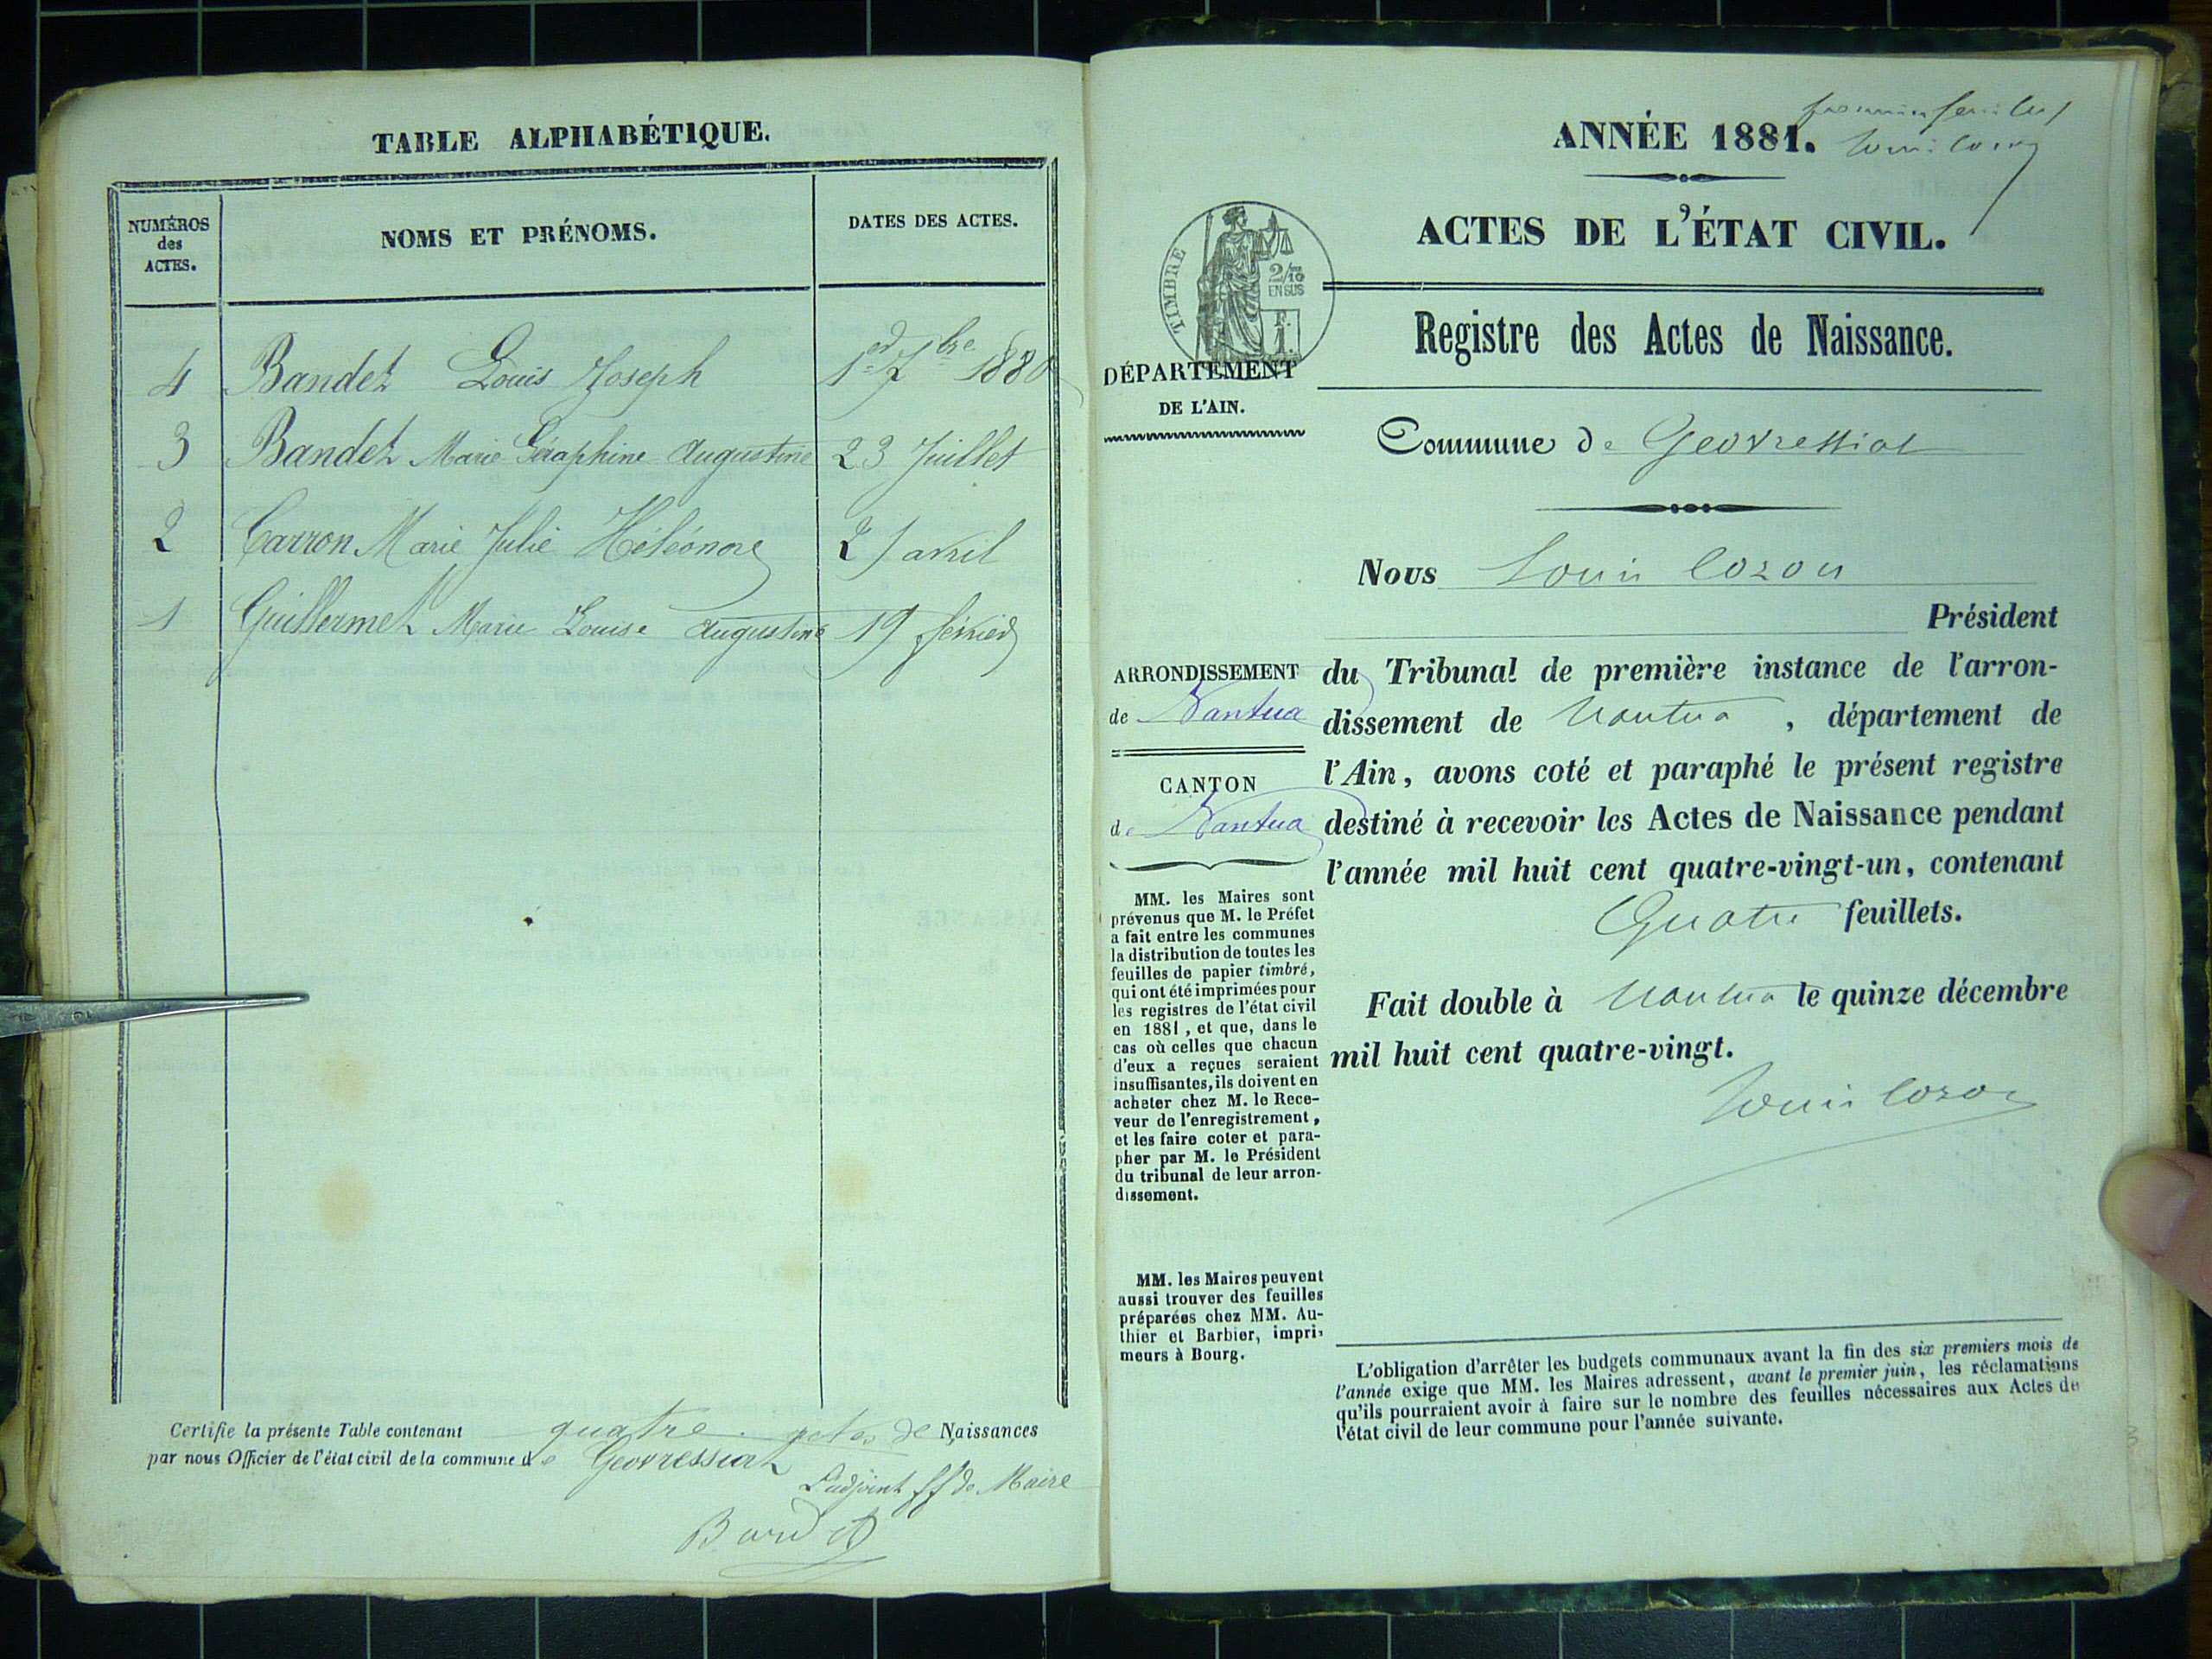 TABLE ALPHABÉTIQUE.
NUMÉROS des ACTES.
NOMS ET PRÉNOMS.
DATES DES ACTES.
4 Bandet Louis Joseph 1er 7bre 1880
3 Bandet Marie Séraphine Augustine 23 Juillet
2 Carron Marie Julie Héléonore 2 avril
1 Guillermet Marie Louise Augustine 19 février
Certifie la présente Table contenant quatre actes de Naissances
par nous Officier de l'état civil de la commune de Geovressiat
L'adjoint ff de Maire
Bandet
premier feuillet
Louis Cozon
ANNÉE 1881.
ACTES DE L'ÉTAT CIVIL.
TIMBRE
2/10
EN SUS
F.
1.
Registre des Actes de Naissance.
DÉPARTEMENT
DE L'AIN.
Commune de Geovressiat
Nous Louis Cozon
Président
du Tribunal de première instance de l'arron-
dissement de Nantua, département de
l'Ain, avons coté et paraphé le présent registre
destiné à recevoir les Actes de Naissance pendant
l'année mil huit cent quatre-vingt-un, contenant
Quatre feuillets.
Fait double à Nantua le quinze décembre
mil huit cent quatre-vingt.
Louis Cozon
ARRONDISSEMENT
de Nantua
CANTON
de Nantua
MM. les Maires sont
prévenus que M. le Préfet
a fait entre les communes
la distribution de toutes les
feuilles de papier timbré,
qui ont été imprimées pour
les registres de l'état civil
en 1881, et que, dans le
cas où celles que chacun
d'eux a reçues seraient
insuffisantes, ils doivent en
acheter chez M. le Rece-
veur de l'enregistrement,
et les faire coter et para-
pher par M. le Président
du tribunal de leur arron-
dissement.
MM. les Maires peuvent
aussi trouver des feuilles
préparées chez MM. Au-
thier et Barbier, impri-
meurs à Bourg.
L'obligation d'arrêter les budgets communaux avant la fin des six premiers mois de
l'année exige que MM. les Maires adressent, avant le premier juin, les réclamations
qu'ils pourraient avoir à faire sur le nombre des feuilles nécessaires aux Actes de
l'état civil de leur commune pour l'année suivante.